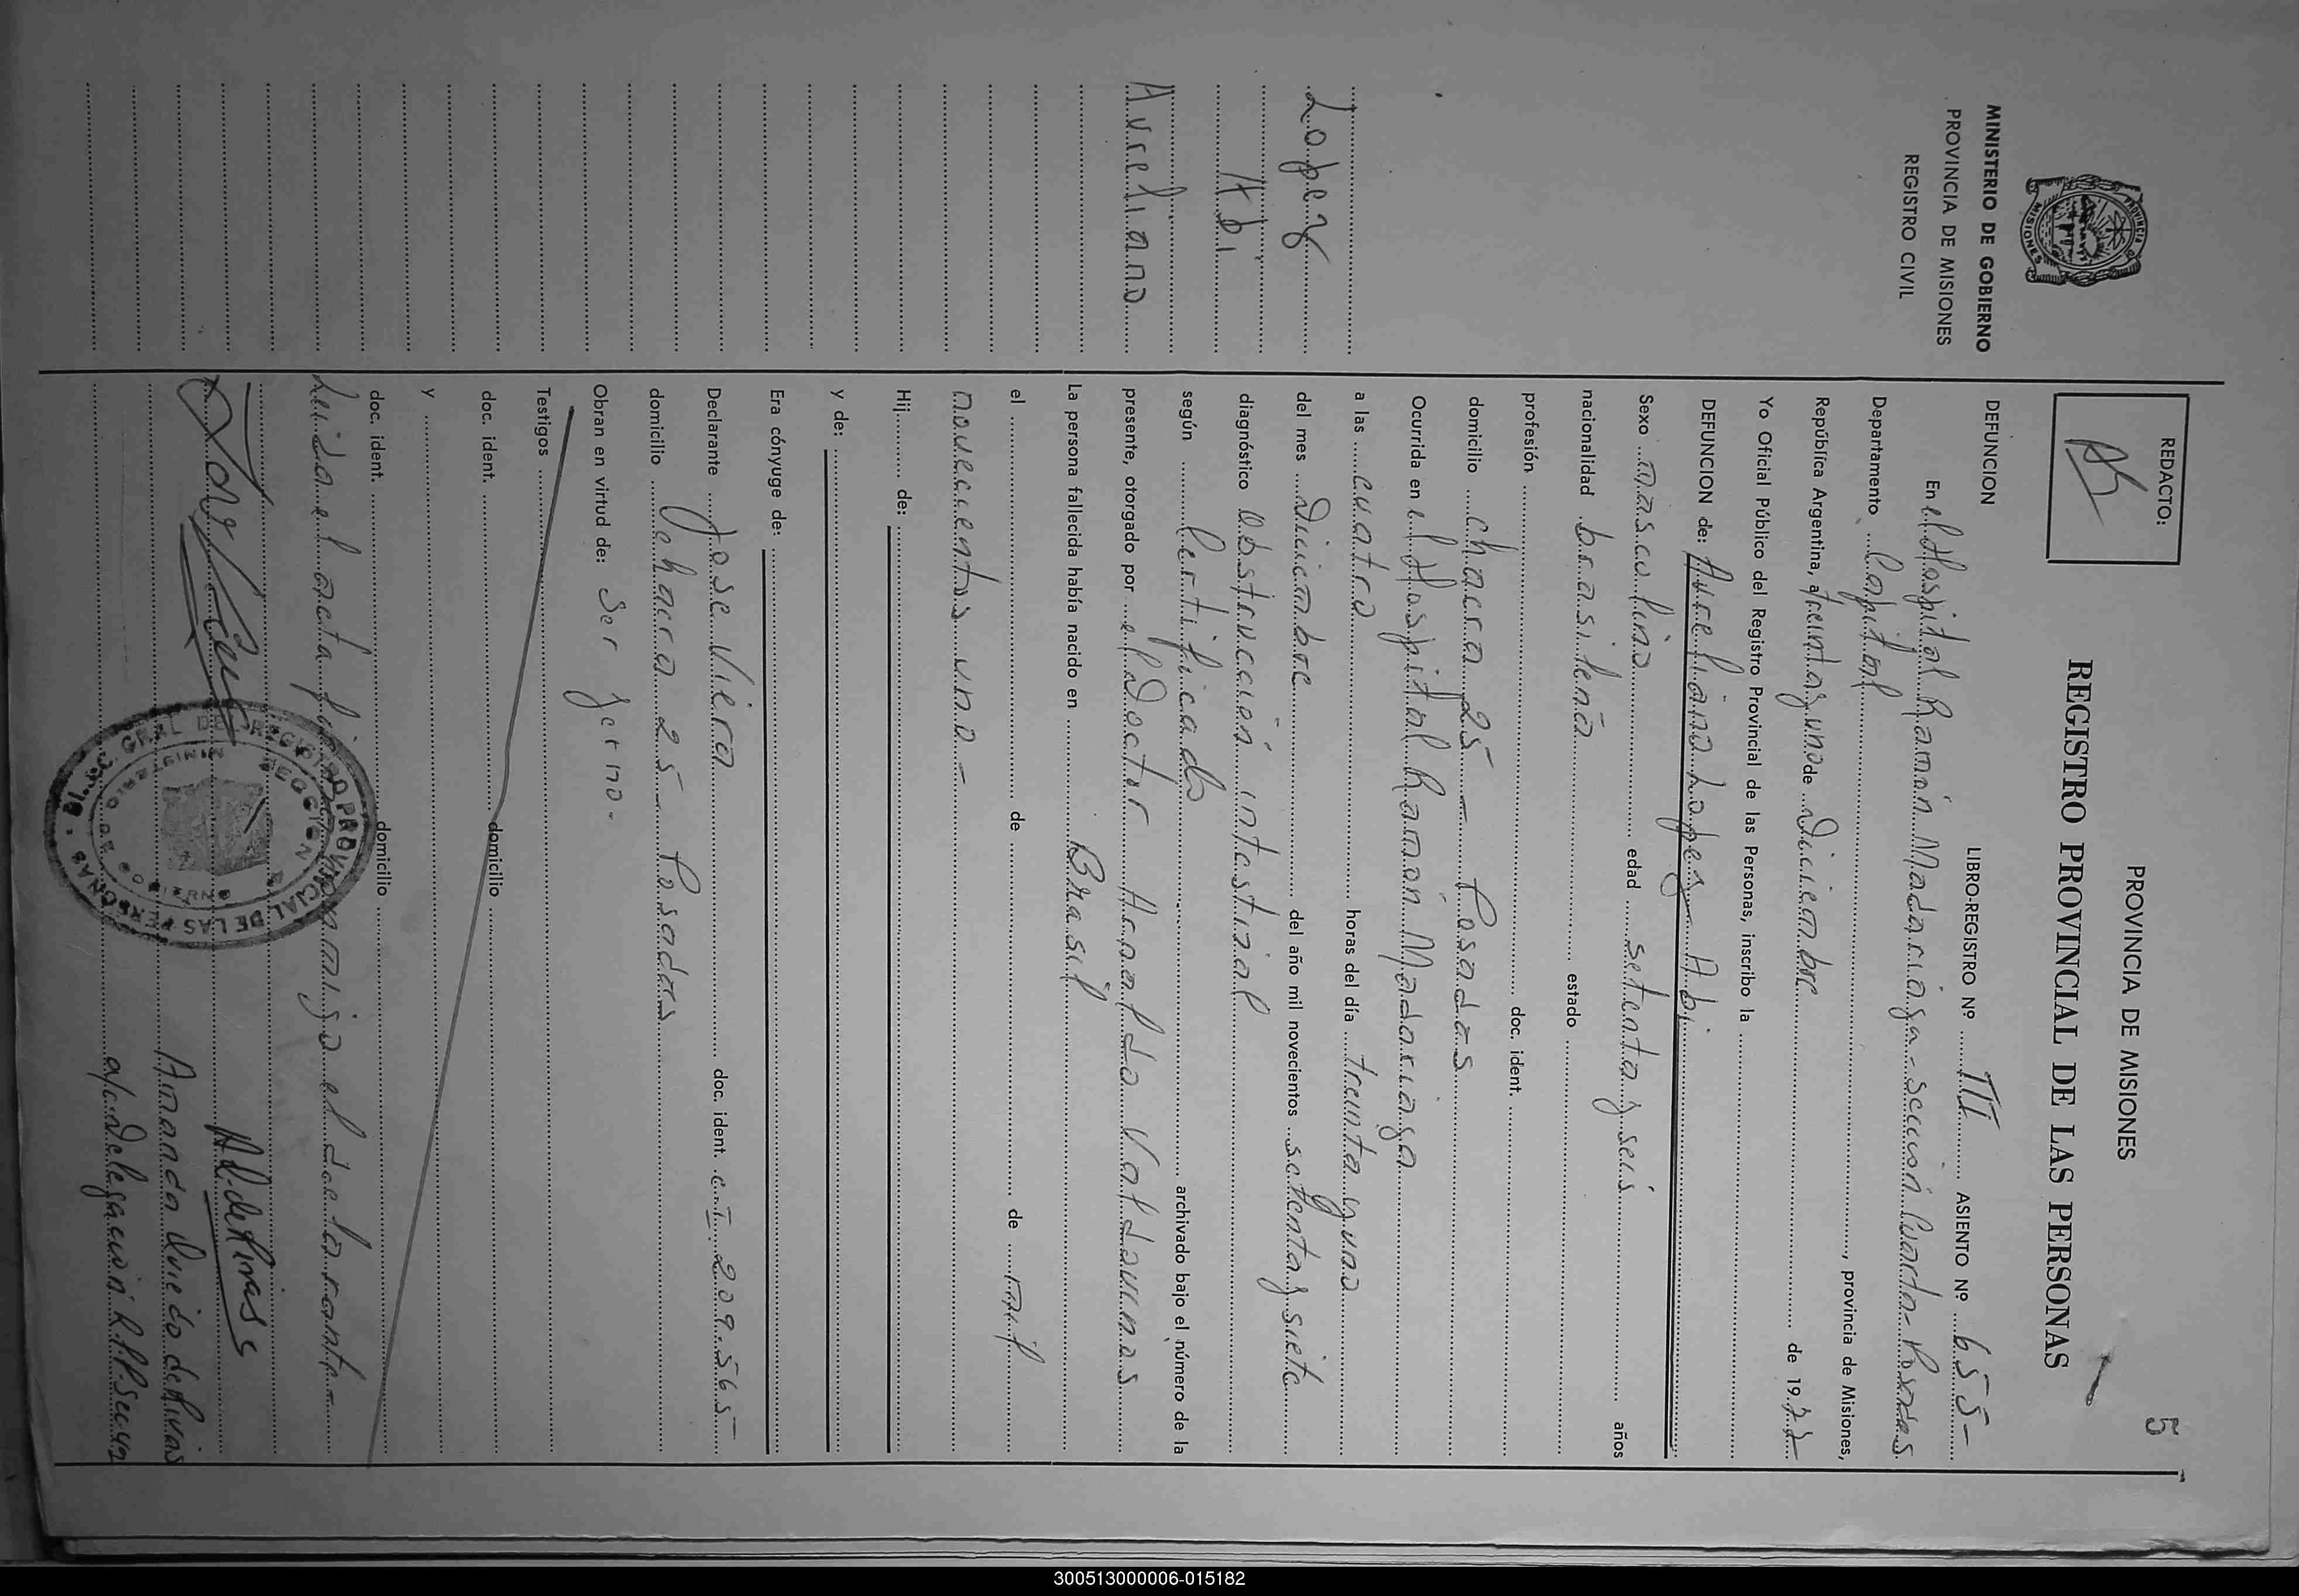 MINISTERIO DE GOBIERNO
PROVINCIA DE MISIONES
REGISTRO CIVIL
PROVINCIA DE MISIONES
Lopez
Abi
Aureliano
5
PROVINCIA DE MISIONES
REGISTRO PROVINCIAL DE LAS PERSONAS
REDACTO:
DEFUNCION LIBRO-REGISTRO Nº III ASIENTO Nº 655-
En el Hospital Ramón Madariaga-sección Cuarta-Posadas
Departamento Capital, provincia de Misiones,
República Argentina, a treinta y uno de Diciembre de 1977
Yo Oficial Público del Registro Provincial de las Personas, inscribo la
DEFUNCION de: Aureliano Lopez Abi
Sexo masculino edad setenta y seis años
nacionalidad brasileña estado
profesión doc. ident.
domicilio chacra 25 - Posadas
Ocurrida en el Hospital Ramón Madariaga
a las cuatro horas del día treinta y uno
del mes Diciembre del año mil novecientos setenta y siete
diagnóstico Obstrucción intestinal
según Certificado archivado bajo el número de la
presente, otorgado por el Doctor Arnaldo Valdovinos
La persona fallecida había nacido en Brasil
el de de mil
novecientos uno-
Hij de:
y de:
Era cónyuge de:
Declarante Jose Viera doc. ident. C.I. 209.565
domicilio chacra 25 - Posadas
Obran en virtud de: ser yerno-
Testigos
doc. ident. domicilio
y
doc. ident. domicilio
Leida el acta conmigo el declarante-
A.D. de Rivas
Amanda Oviedo de Rivas
a/c Delegación R.P.P. Secc 4a
DIREC. GRAL. DEL REGISTRO PROVINCIAL DE LAS PERSONAS
MINISTERIO DE GOBIERNO
300513000006-015182